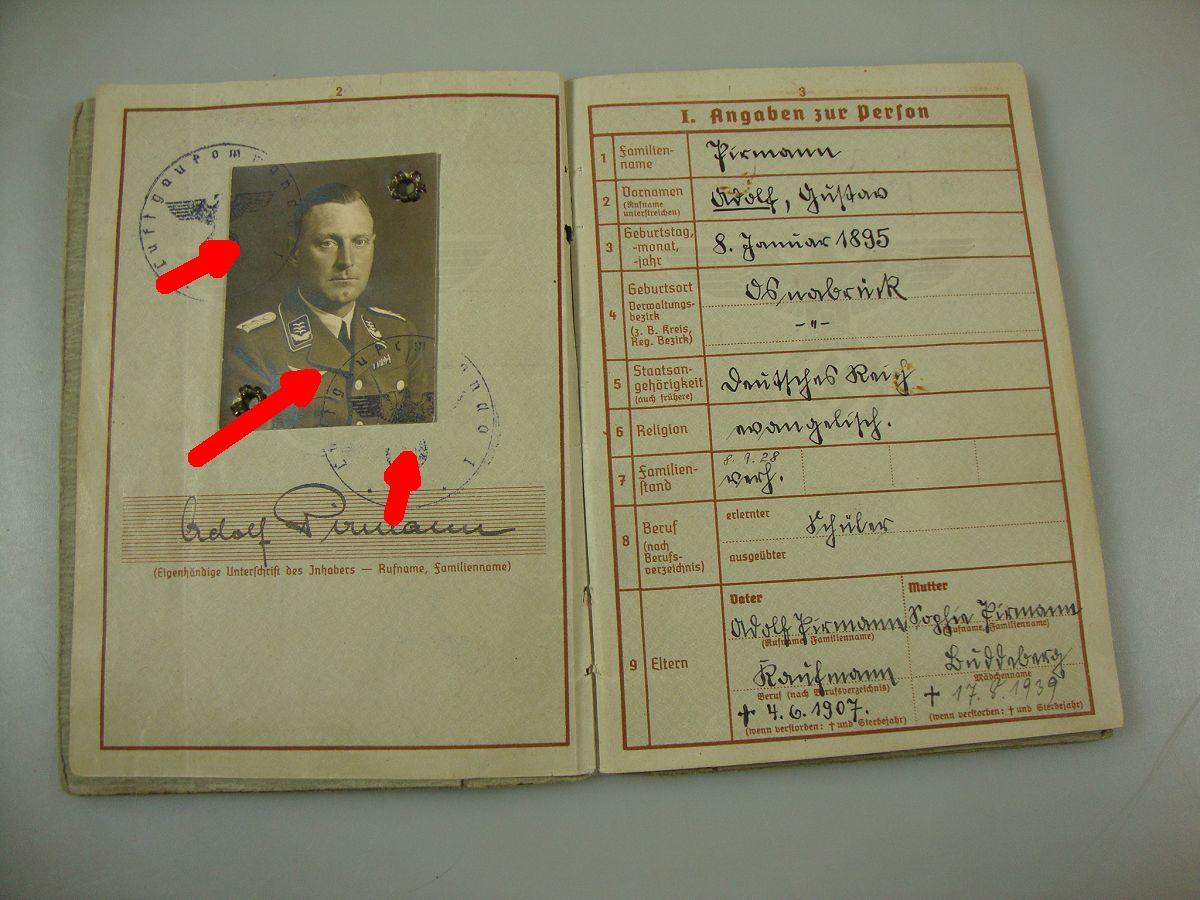 2
Luftgaukommando I
Luftgaukommando I
Adolf Pirmann
(Eigenhändige Unterschrift des Inhabers — Rufname, Familienname)
3
I. Angaben zur Person
1 Familien-
name
Pirmann
2 Vornamen
(Rufname
unterstreichen)
Adolf, Gustav
3 Geburtstag,
-monat,
-jahr
8. Januar 1895
4 Geburtsort
Verwaltungs-
bezirk
(z. B. Kreis,
Reg. Bezirk)
Osnabrück
-"-
5 Staatsan-
gehörigkeit
(auch frühere)
Deutsches Reich
6 Religion
evangelisch.
7 Familien-
stand
8.9.28
verh.
8 Beruf
(nach
Berufs-
verzeichnis)
erlernter
Schüler
ausgeübter
9 Eltern
Vater
Adolf Pirmann
(Rufname, Familienname)
Kaufmann
Beruf (nach Berufsverzeichnis)
† 4.6.1907.
(wenn verstorben: † und Sterbejahr)
Mutter
Sophie Pirmann
(Rufname, Familienname)
Buddeberg
Mädchenname
† 17.8.1939
(wenn verstorben: † und Sterbejahr)